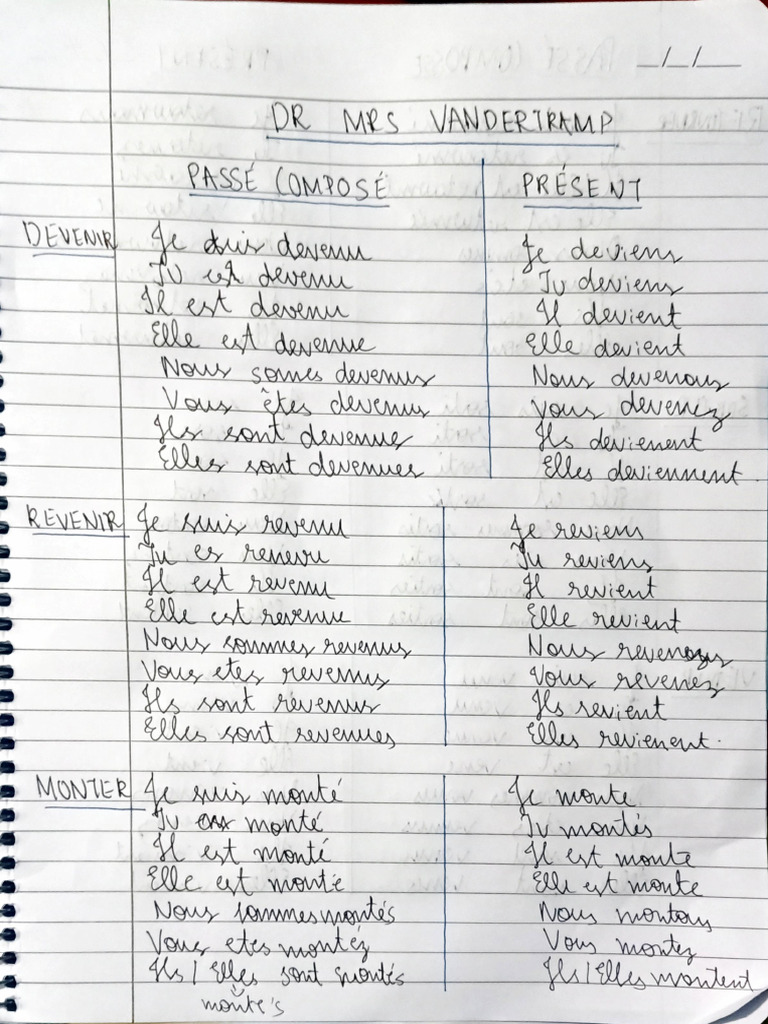 _/_/__
DR MRS VANDERTRAMP
PASSÉ COMPOSÉ PRÉSENT
DEVENIR Je suis devenu Je deviens
Tu est devenu Tu deviens
Il est devenu Il devient
Elle est devenue Elle devient
Nous somes devenus Nous devenous
Vous êtes devenus Vous devenez
Ils sont devenue Ils devienent
Elles sont devenues Elles deviennent.
REVENIR Je suis revenu Je reviens
Tu es renevu Tu reviens
Il est revenu Il revient
Elle est revenue Elle revient
Nous sommes revenus Nous revenons
Vous etes revenus Vous revenez
Ils sont revenus Ils revient
Elles sont revenues Elles revienent.
MONTER Je suis monté Je monte
Tu monté Tu montés
Il est monté Il est monte
Elle est monté Elle est monte
Nous sommes montés Nous montons
Vous etes montéz Vous montez
Ils / Elles sont montés Ils / Elles montent
monté's